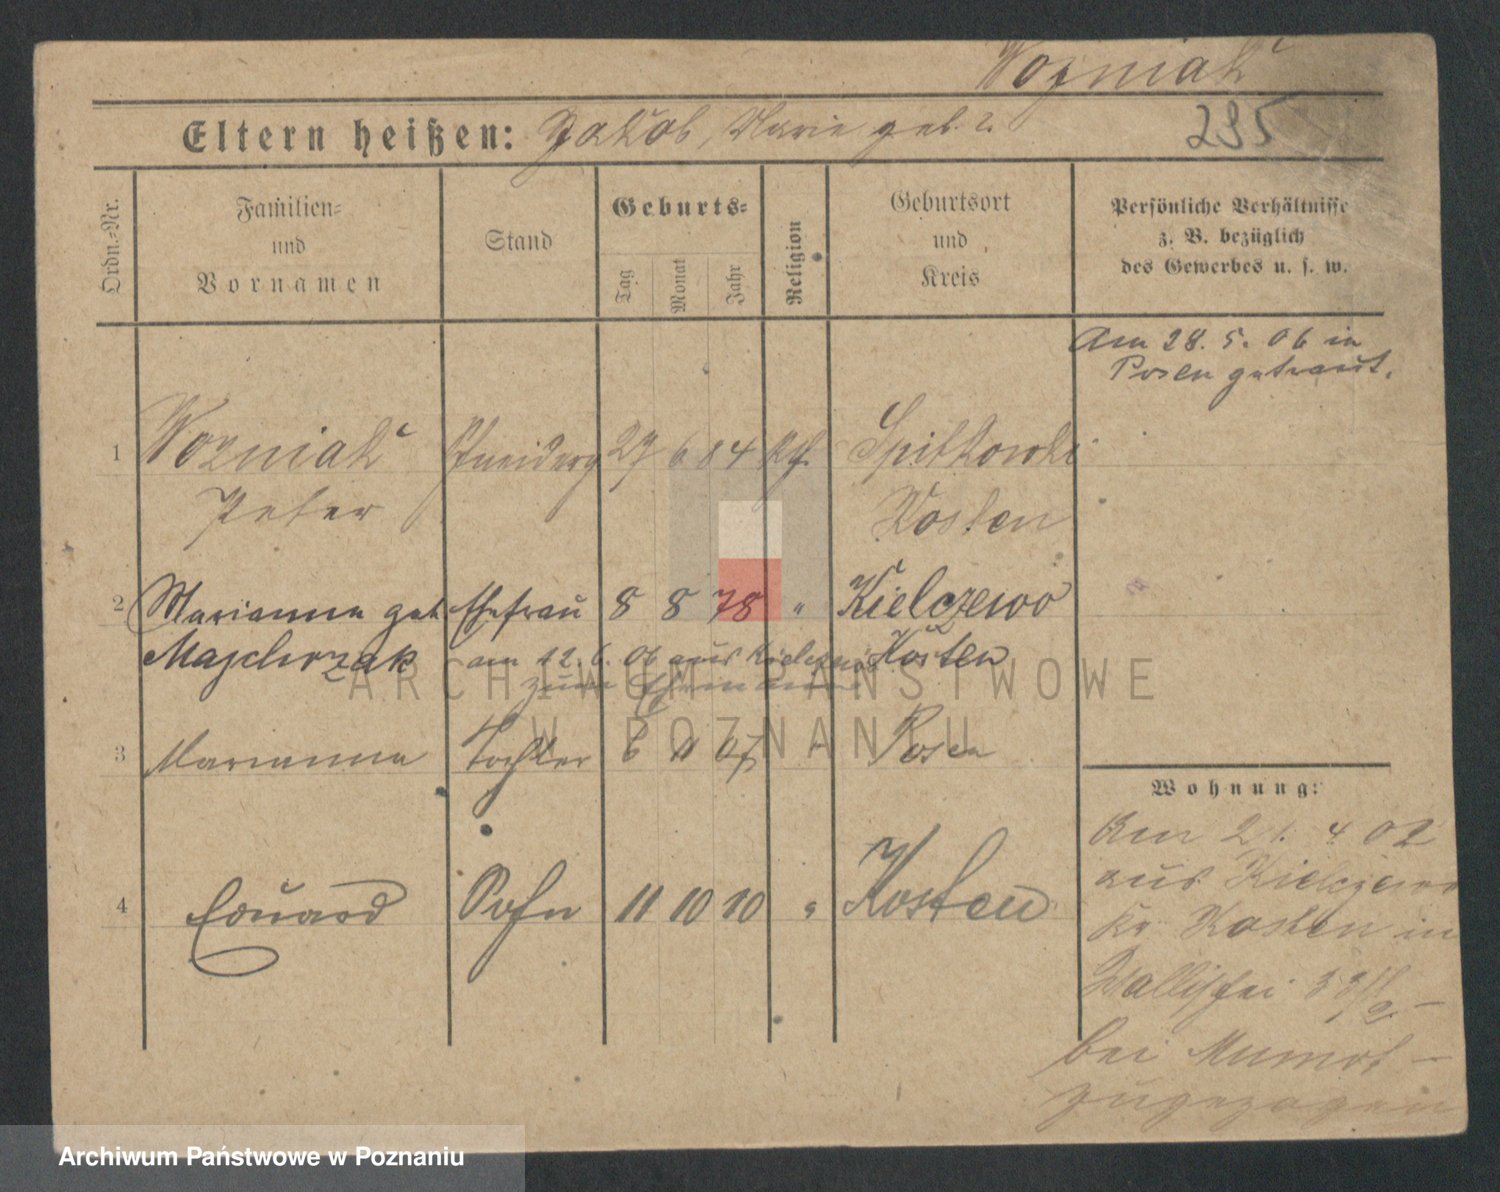 Wozniak
Eltern heißen: Jakob, Marie geb. ?
295
Ordn.-Nr.
Familien-
und
Vornamen
Stand
Geburts-
Tag
Monat
Jahr
Religion
Geburtsort
und
Kreis
Persönliche Verhältnisse
z. B. bezüglich
des Gewerbes u. s. w.
Am 28. 5. 06 in
Posen getraut.
1 Wozniak 27 6 84 kth. Spitkowki
Peter Kosten
2 Marianna geb. Ehefrau 8 8 78 " Kielczewo
Majchrzak am 12. 6. 06 aus Kielczewo Kosten
zum Ehemann
3 Marianna Tochter 6 11 07 " Posen
4 Eduard Sohn 11 10 10 " Kosten
Wohnung:
Am 21. 4 02
aus Kielczewo
Kr. Kosten in
Wallischei
bei
zugezogen
ARCHIWUM PAŃSTWOWE
W POZNANIU
Archiwum Państwowe w Poznaniu